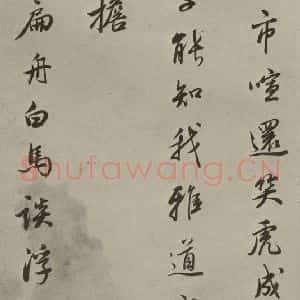 市喧還笑虎成
能知我雅道
擔
扁舟白馬談浮
Shufawang.CN